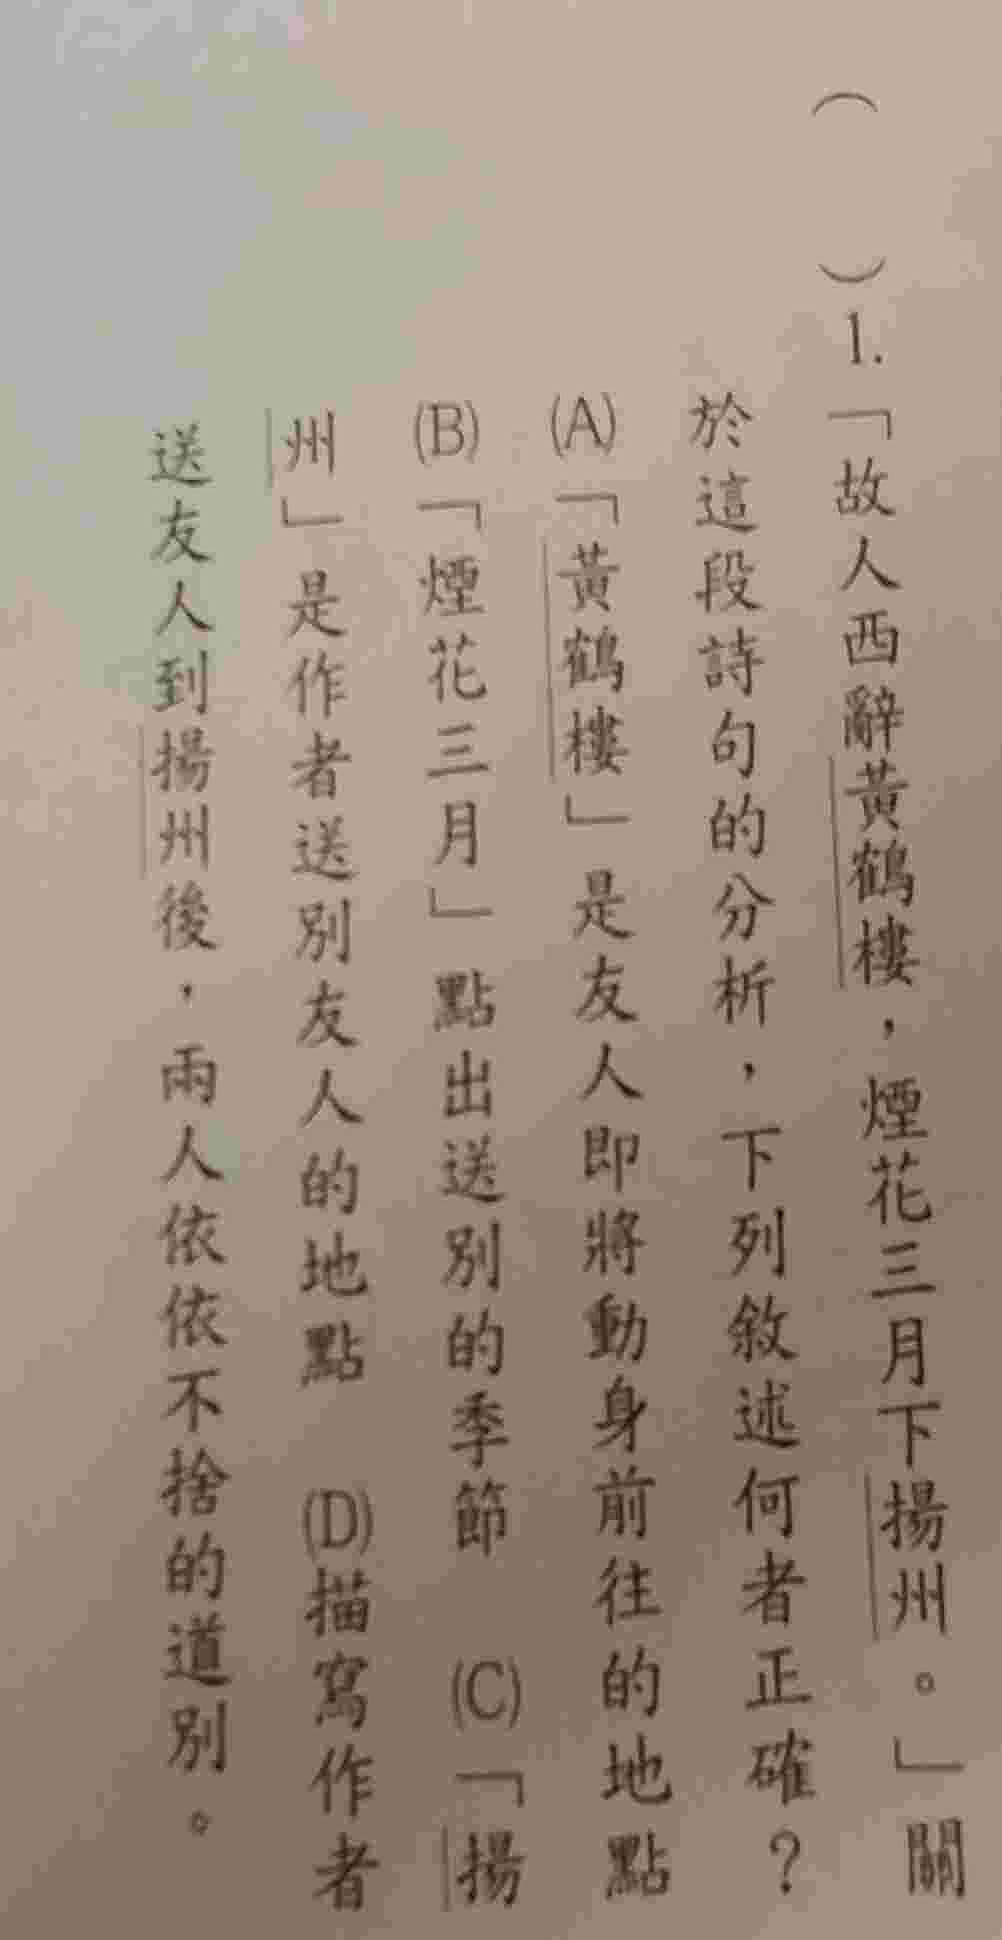 （　　）1.「故人西辭黃鶴樓，煙花三月下揚州。」關
於這段詩句的分析，下列敘述何者正確？
(A)「黃鶴樓」是友人即將動身前往的地點
(B)「煙花三月」點出送別的季節　(C)「揚
州」是作者送別友人的地點　(D)描寫作者
送友人到揚州後，兩人依依不捨的道別。